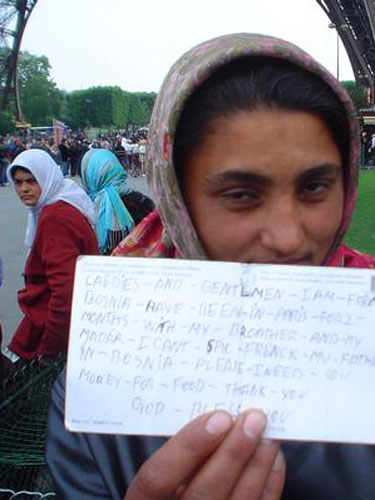 LADIES - AND - GENTLEMEN - I AM - FORM
BOSNIA - HAVE - BEEN - IN - PARIS - FOR 2 -
MONTHS - WITH - MY - BROATHER - AND - MY
MADAR - I CANT - SPIK - FRENCK - MY - FATHE
YN - BOSNIA - PLEASE - I NEED - YOU
MONEY - FOR - FOOD - THANK - YOU
GOD - BLESS YOU